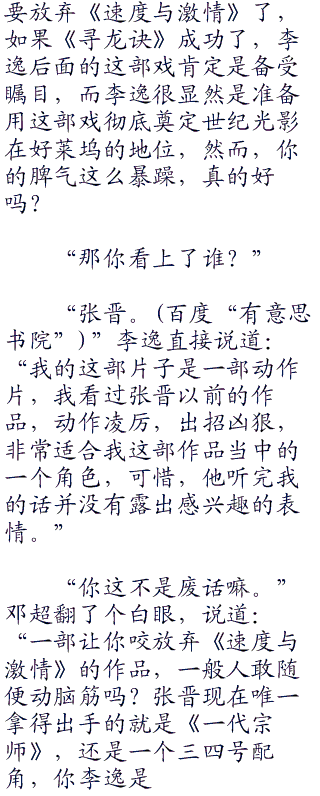 要放弃《速度与激情》了，
如果《寻龙诀》成功了，李
逸后面的这部戏肯定是备受
瞩目，而李逸很显然是准备
用这部戏彻底奠定世纪光影
在好菜坞的地位，然而，你
的脾气这么暴躁，真的好
吗？
“那你看上了谁？”
“张晋。(百度“有意思
书院”)”李逸直接说道：
“我的这部片子是一部动作
片，我看过张晋以前的作
品，动作凌厉，出招凶狠，
非常适合我这部作品当中的
一个角色，可惜，他听完我
的话并没有露出感兴趣的表
情。”
“你这不是废话嘛。”
邓超翻了个白眼，说道：
“一部让你咬放弃《速度与
激情》的作品，一般人敢随
便动脑筋吗？张晋现在唯一
拿得出手的就是《一代宗
师》，还是一个三四号配
角，你李逸是